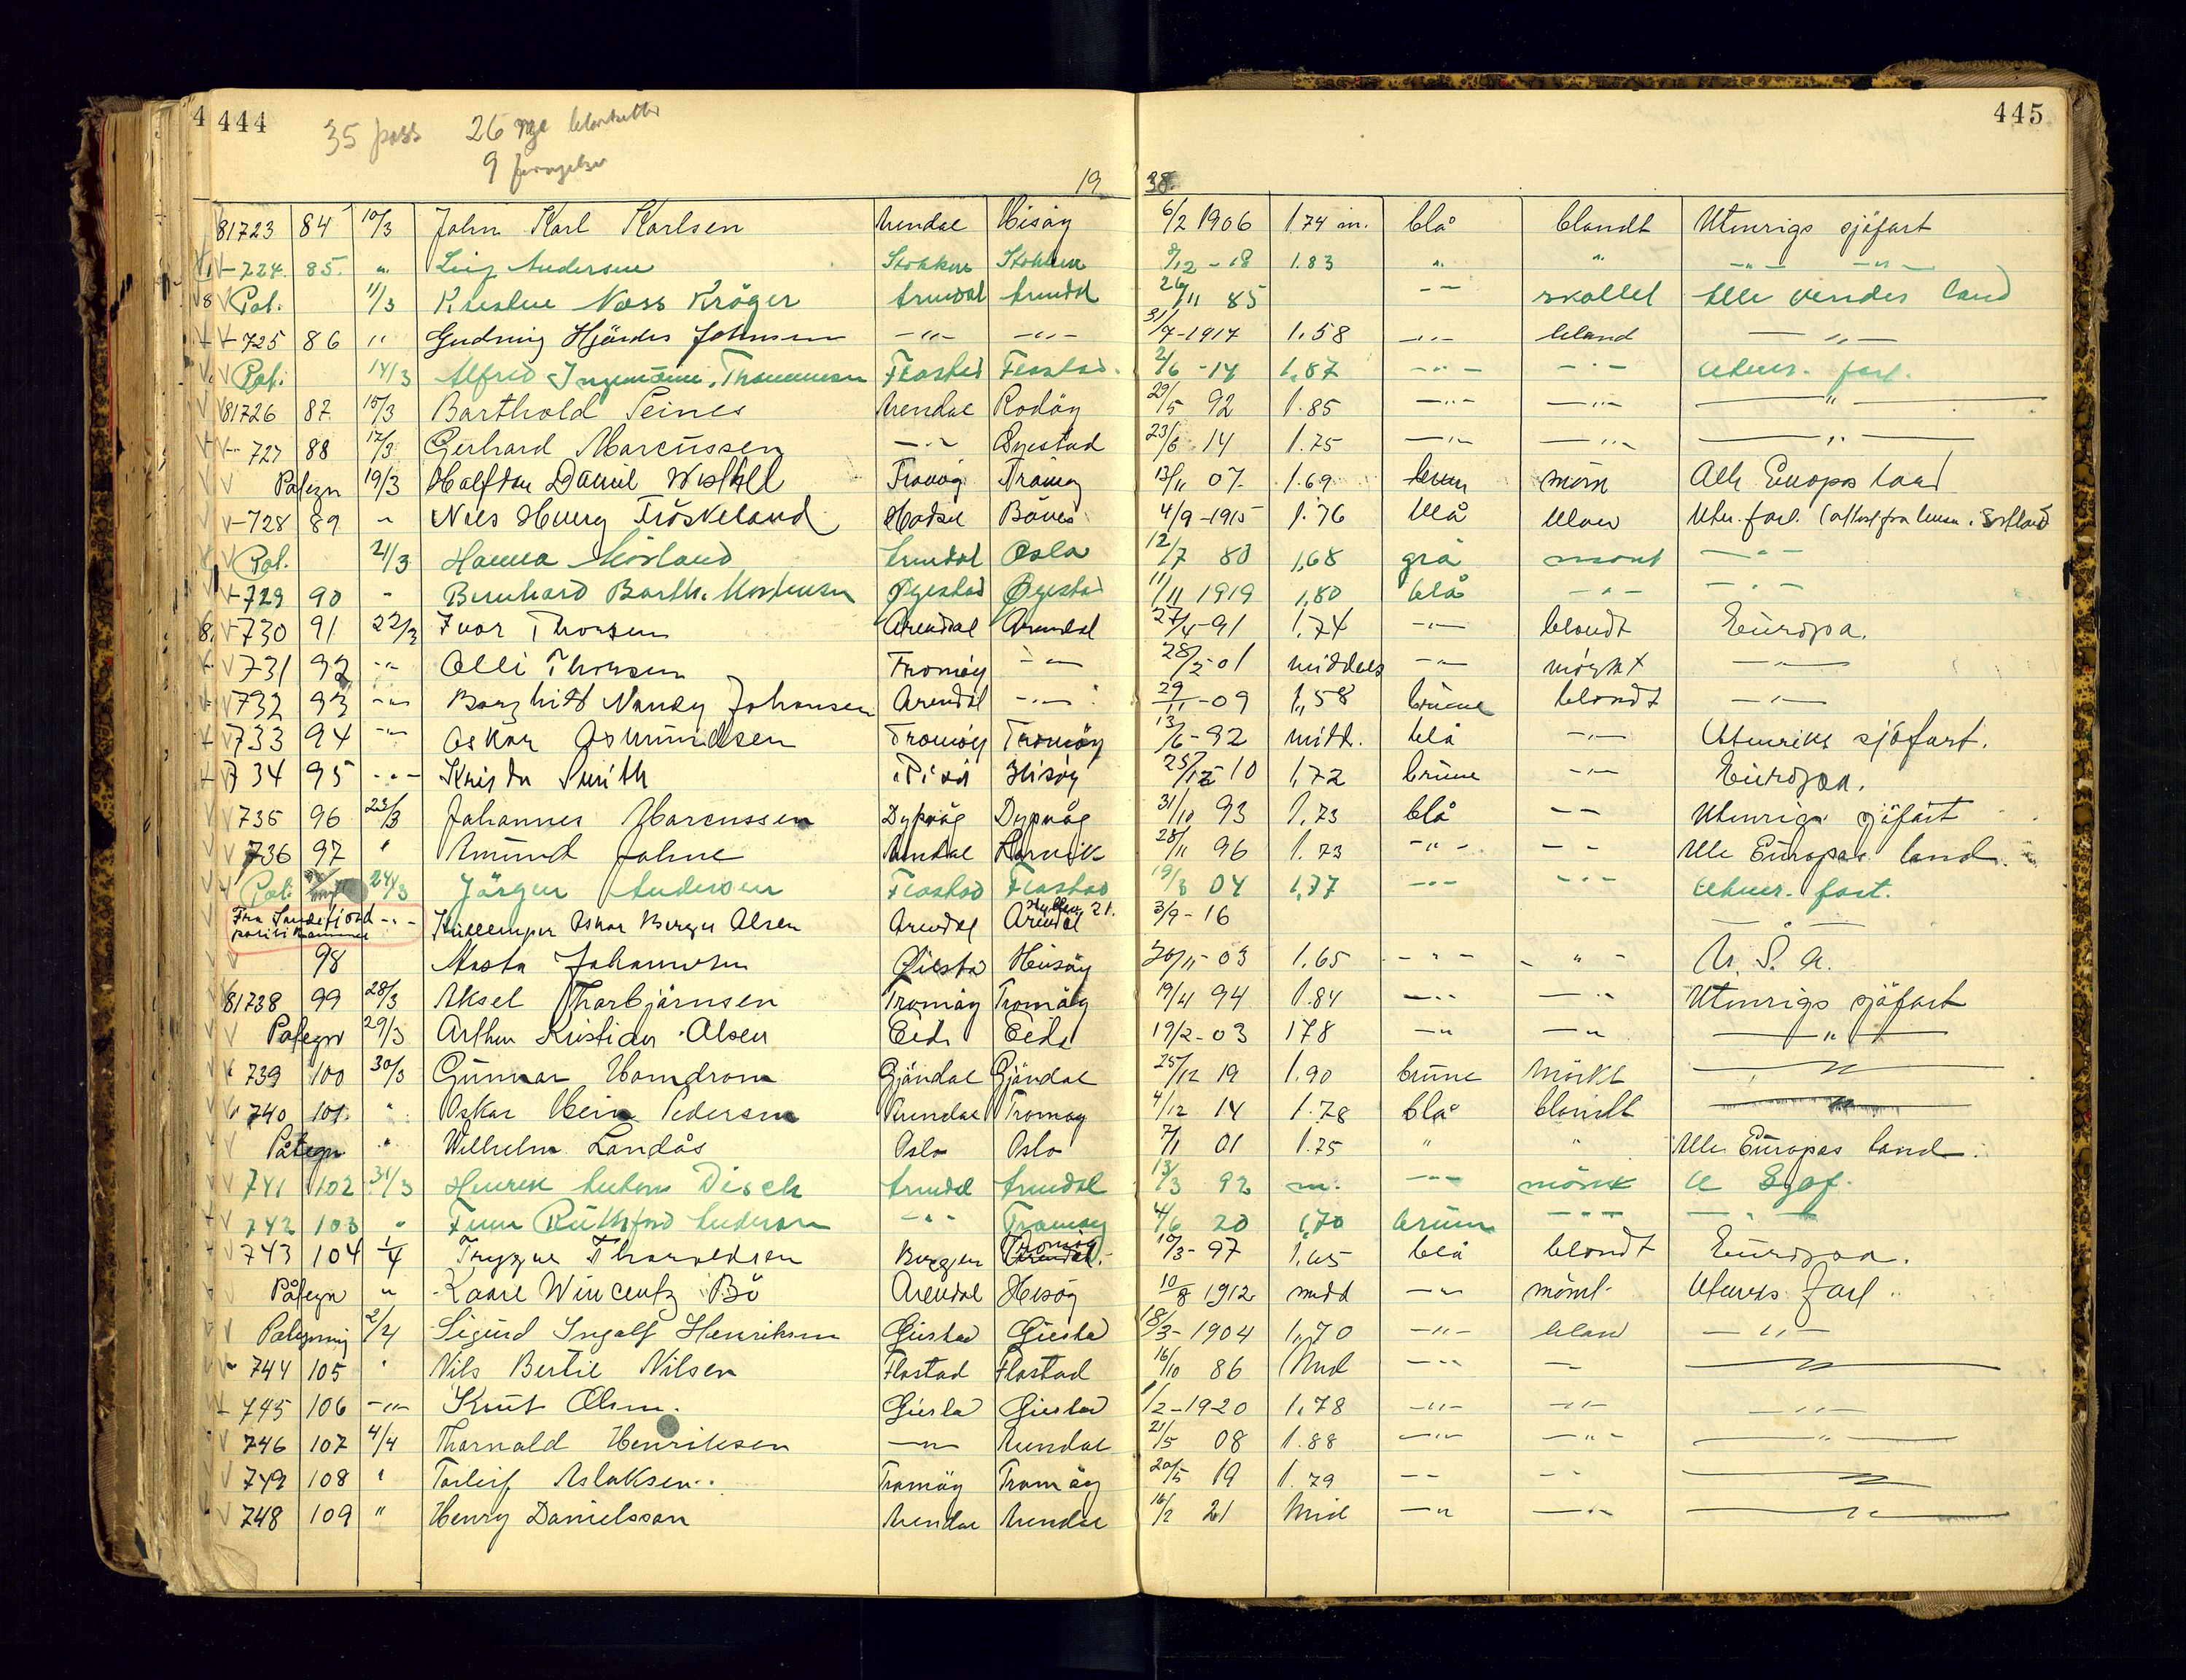 4 444 445
35 pass 26 nye blanketter
9 fornyelser
19 38.
81723 84 10/3 John Karl Karlsen Arendal Hisöy 6/2 1906 1.74 m. blå blondt Utenrigs sjöfart
-724. 85. " Leif Andersen Stokken Stokken 9/12 - 18 1.83 " " -"- -"-
Påt. 11/3 Kristine Næss Kröger Arendal Arendal 26/11 85 -- skallet Alle verdes land
-725 86 " Gudrun Hjördis Johnsen -"- -"- 31/7-1917 1.58 -"- blond -"-
Påt. 14/3 Alfred Ingemann Thommesen Flostad Flostad. 2/6 -14 1,87 -"- -"- Utenr. fart.
81726 87 15/3 Barthold Seines Arendal Rödöy 29/5 92 1.85 -"- -"- -"-
-727 88 17/3 Gerhard Marcussen -"- Öyestad 23/6 14 1.75 -"- -"- -"-
Påtegn 19/3 Halfdan Daniel Tromöy Tromöy 13/11 07 1.69 brun mörk Alle Europas land
-728 89 " Nils Henry Tröskeland Hadsel Bönes 4/9-1915 1.76 blå blond Uten. fart. (attest fra lensm. Sortland
Påt. 21/3 Hanna Arendal Oslo 12/7 80 1,68 grå mörkt -"-
-729 90 - Bernhard Barth. Mortensen Öyestad Öyestad 11/11 1919 1,80 blå -"- -"-
-730 91 22/3 Ivar Thorsen Arendal Arendal 27/4-91 1,74 -"- blondt Europa.
731 92 -"- Olli Thorsen Tromöy -"- 28/5-01 middels -"- mörkt -"-
732 93 -"- Borghild Nancy Johansen Arendal -"- 29/11-09 1,58 brune blondt -"-
733 94 -"- Oskar Osmundsen Tromöy Tromöy 13/6-92 midd. blå -"- Utenriks sjöfart.
734 95 -"- Smith Hisöy 25/12-10 1,72 brune -"- Europa.
735 96 23/3 Johannes Marcussen Dypvåg Dypvåg 31/10 93 1,73 blå -- Utenrigs sjöfart
736 97 " Amund Johne Arendal Larvik 28/11 96 1.73 -"- -- Alle Europas land.
Påt. 24/3 Jörgen Andersen Flostad Flostad 19/8 04 1,77 -"- -"- Utenr. fart.
Fra Sandefjord politikammer -"- Oskar Birger Olsen Arendal Arendal 21. 3/9-16
98 Aasta Johannesen Öiestad Hisöy 30/11-03 1,65 -"- -"- U. S. A.
81738 99 28/3 Aksel Thorbjörnsen Tromöy Tromöy 19/4 94 1.84 -"- -"- Utenrigs sjöfart
Påtegn 29/3 Arthur Kristian Olsen Eide Eide 19/2-03 178 -"- -"- -"-
739 100 30/3 Gunnar Homdrom Gjöndal Gjöndal 25/12 19 1.90 brune Mörkt -"-
740 101. " Oskar Hein Pedersen Arendal Tromöy 4/12 14 1.78 blå blondt -"-
Påtegn " Wilhelm Landås Oslo Oslo 7/1 01 1.75 " " Alle Europas land.
741 102 31/3 Henrik Anton Disch Arendal Arendal 13/3 92 m. -"- mörk U Sjöf.
742 103 " Finn Ruthford Anderson -"- Tromöy 4/6 20 1,70 brun -"- -"-
743 104 1/4 Trygve Thoraldsen Bergen Tromöy 10/3-97 1,65 blå blondt Europa.
Påtegn " Kaare Wincentz Bö Arendal Hisöy 10/8 1912 midd -"- mörkt Utenrs fart.
Påtegning 2/4 Sigurd Ingolf Henriksen Öiestad Öiestad 18/3-1904 1,70 -"- blond -"-
744 105 " Nils Bertil Nilsen Flostad Flostad 16/10 86 Mid -"- -"- -"-
745 106 -"- Knut Olsen. Öiestad Öiestad 1/2-1920 1,78 -"- -"- -"-
746 107 4/4 Thorvald Henriksen -"- Arendal 21/5 08 1.88 -"- -"- -"-
749 108 " Torleif Aslaksen. Tromöy Tromöy 20/5 19 1.79 -- -"- -"-
748 109 " Henry Danielsson Arendal Arendal 16/2 21 Mid -"- -"- -"-